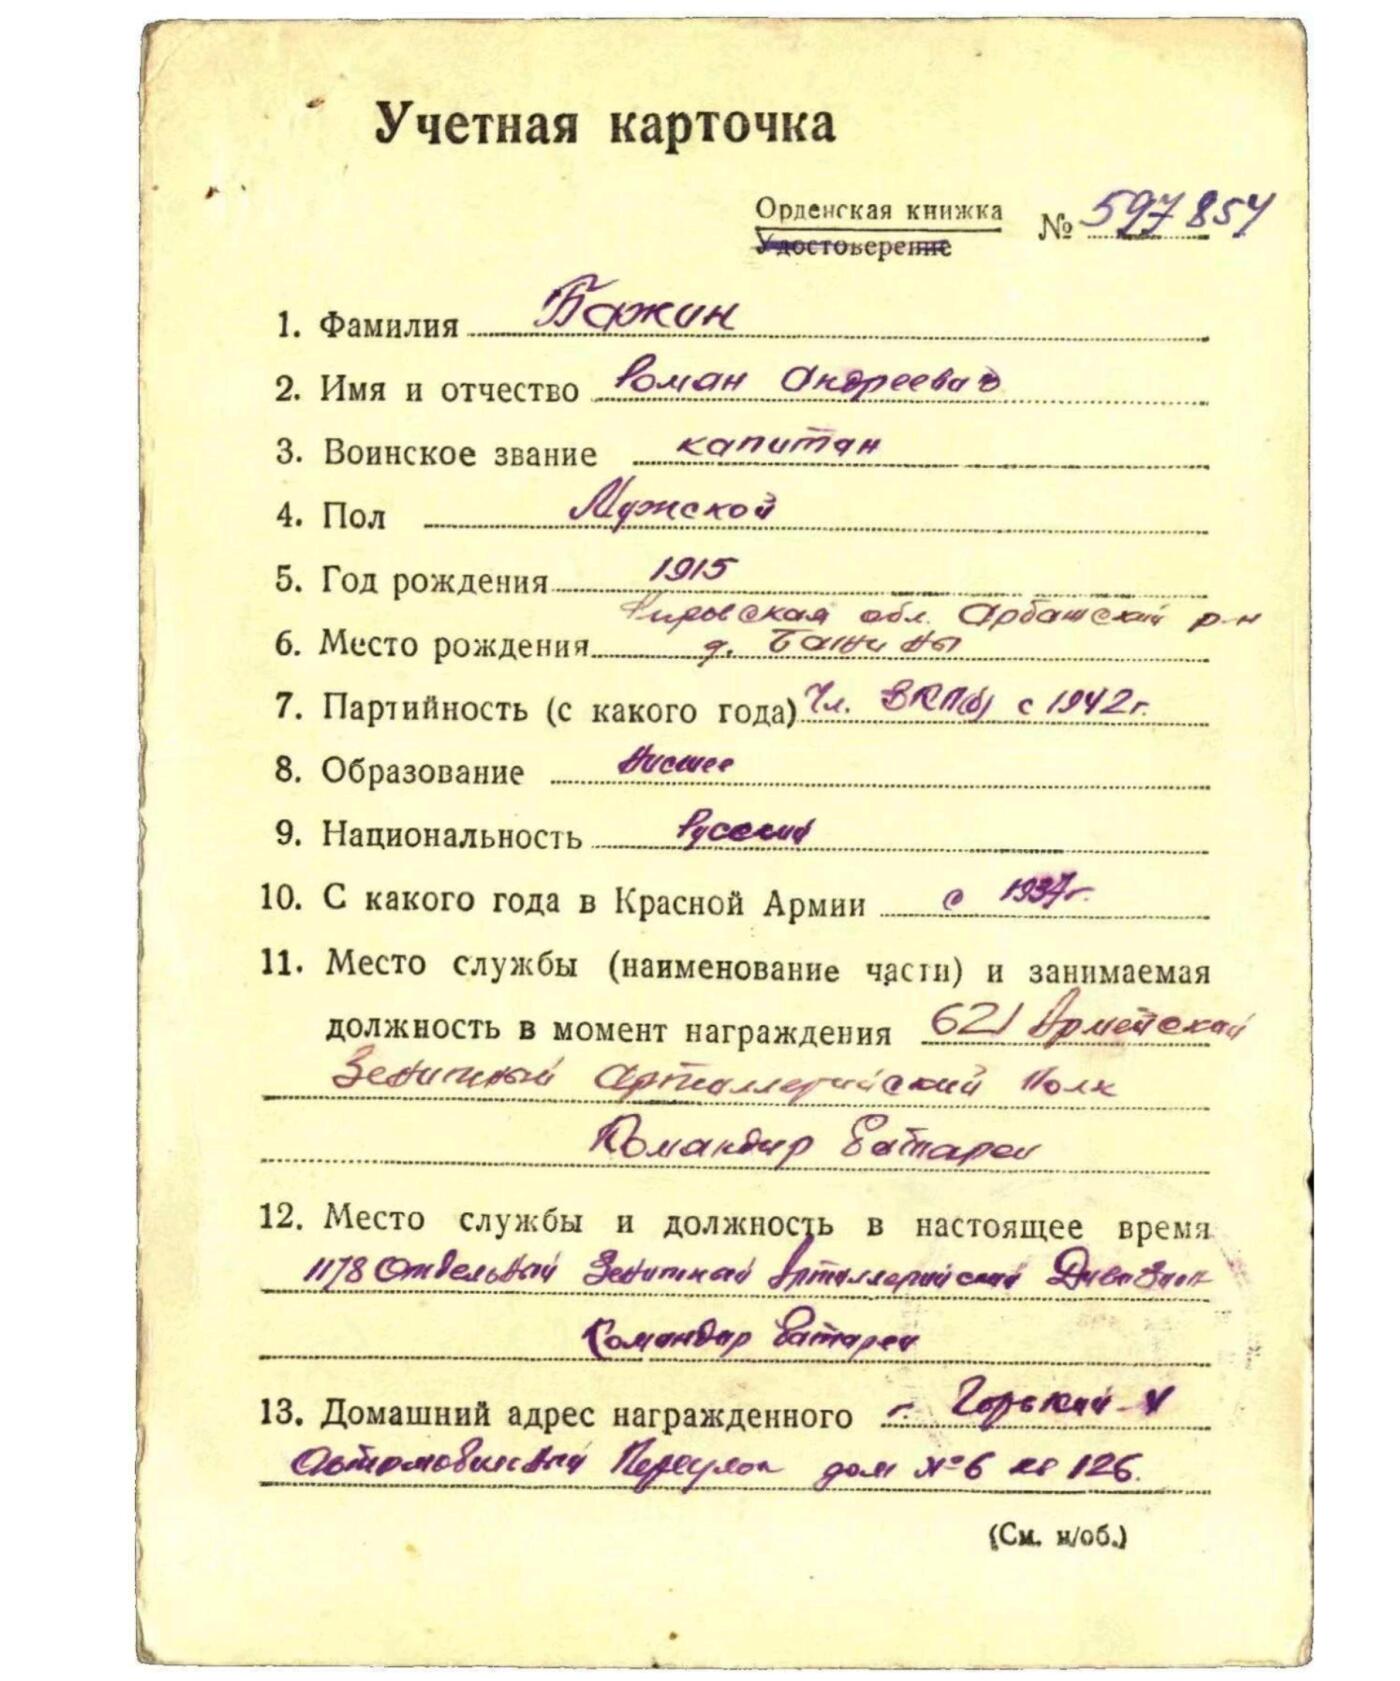 Учетная карточка
Орденская книжка
Удостоверение
№ 597854
1. Фамилия Бажин
2. Имя и отчество Роман Андреевич
3. Воинское звание капитан
4. Пол Мужской
5. Год рождения 1915
Кировская обл. Арбажский р-н
6. Место рождения д. Бажины
7. Партийность (с какого года) Чл. ВКП(б) с 1942 г.
8. Образование Высшее
9. Национальность Русский
10. С какого года в Красной Армии с 1937 г.
11. Место службы (наименование части) и занимаемая
должность в момент награждения 621 Армейский
Зенитный Артиллерийский Полк
Командир Батареи
12. Место службы и должность в настоящее время
1178 Отдельный Зенитный Артиллерийский Дивизион
Командир Батареи
13. Домашний адрес награжденного г. Горький-4
Автомобильный Переулок дом №6 кв 126.
(См. н/об.)